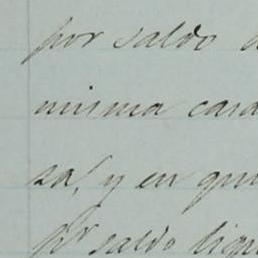 por saldo
misma casa
sa, y en qu
pr saldo liqu